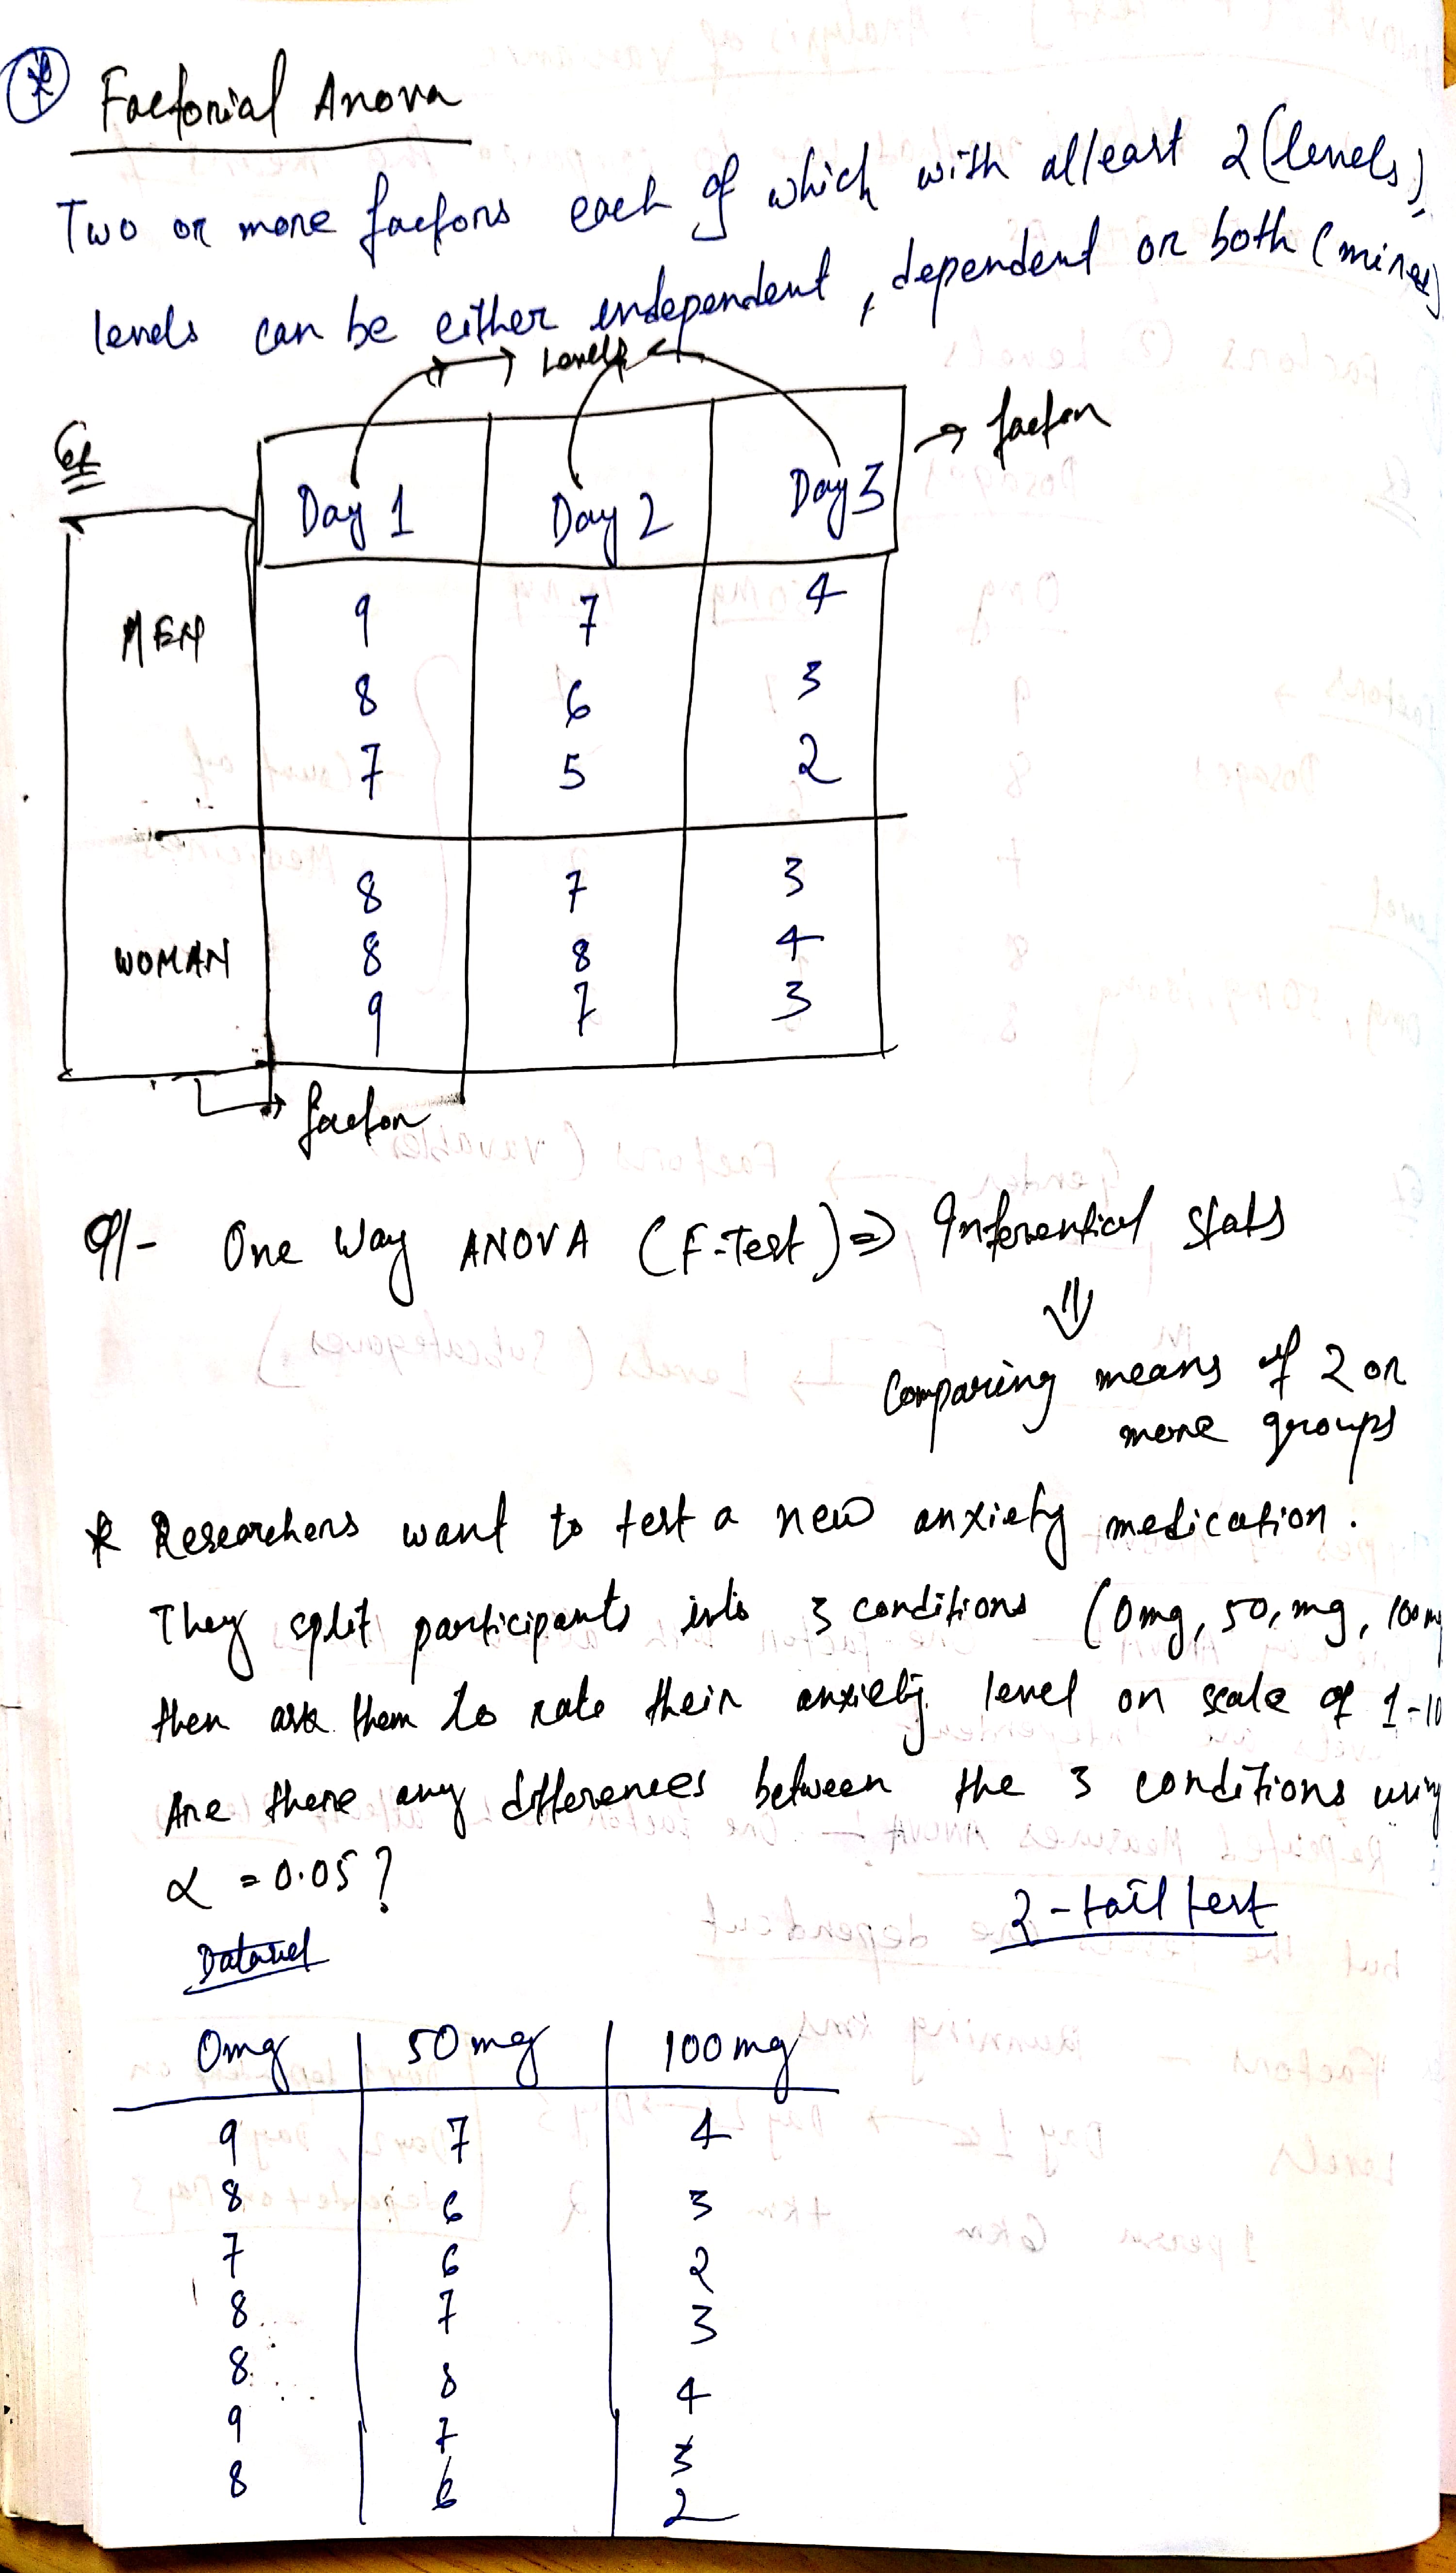 Factorial Anova
Two or more factors each of which with atleast 2 (levels),
levels can be either independent, dependent or both (mixed)
Levels
Ex
→ factor
Day 1 Day 2 Day 3
MEN
9 7 4
8 6 3
7 5 2
WOMAN
8 7 3
8 8 4
9 7 3
→ factor
Q/- One Way ANOVA (F-Test) ⇒ Inferential stats
⇓
Comparing means of 2 or
more groups
* Researchers want to test a new anxiety medication.
They split participants into 3 conditions (0mg, 50mg, 100mg
then ask them to rate their anxiety level on scale of 1-10
Are there any differences between the 3 conditions using
α = 0.05?
2-tail test
Dataset
0mg 50mg 100mg
9 7 4
8 6 3
7 6 2
8 7 3
8 8 4
9 7 3
8 6 2